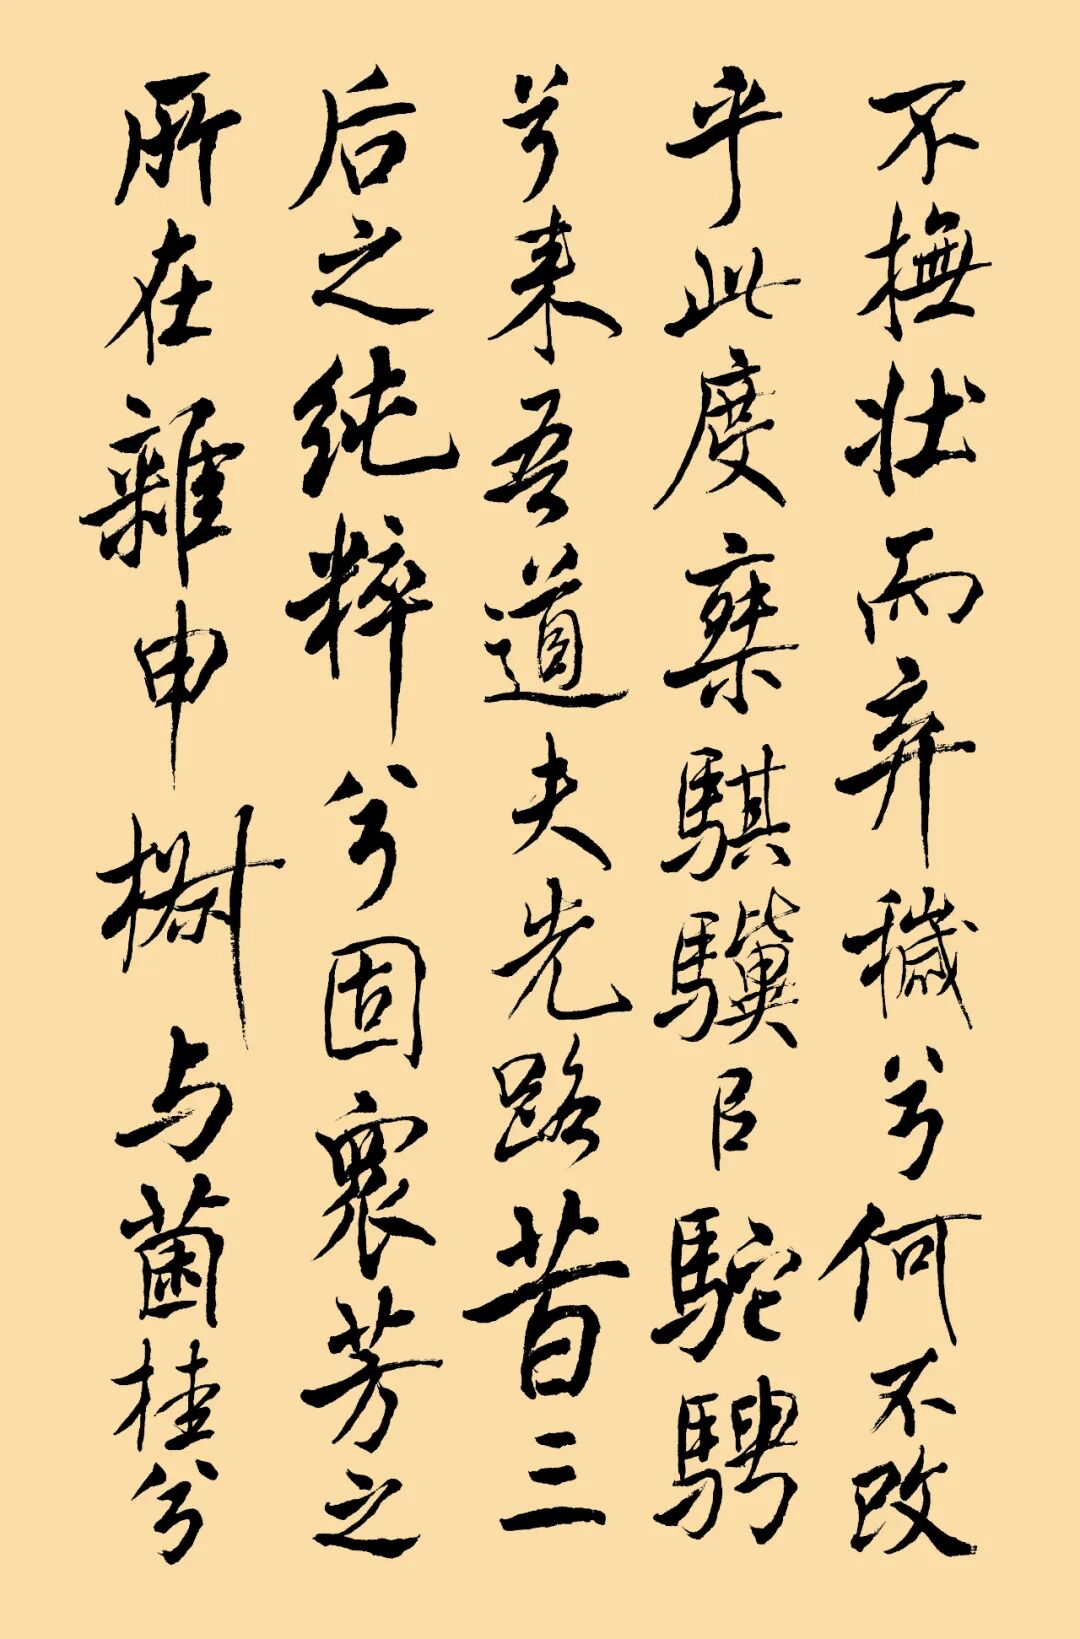 不撫壯而弃穢兮何不改
乎此度椉騏驥㠯駝騁
兮来吾道夫先路昔三
后之純粹兮固衆芳之
所在雜申椒与菌桂兮